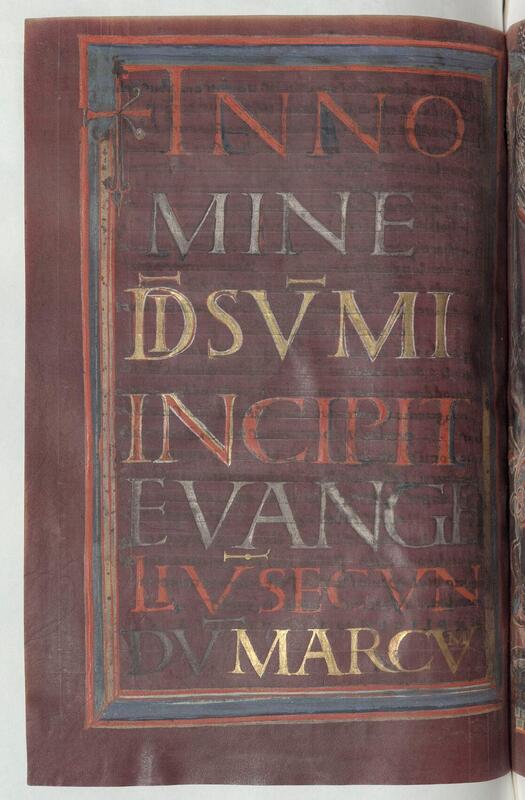 INNO
MINE
D̄I SV̄MI
INCIPIT
EVANGE
LIV̄ SECUN
DV̄ MARCVM